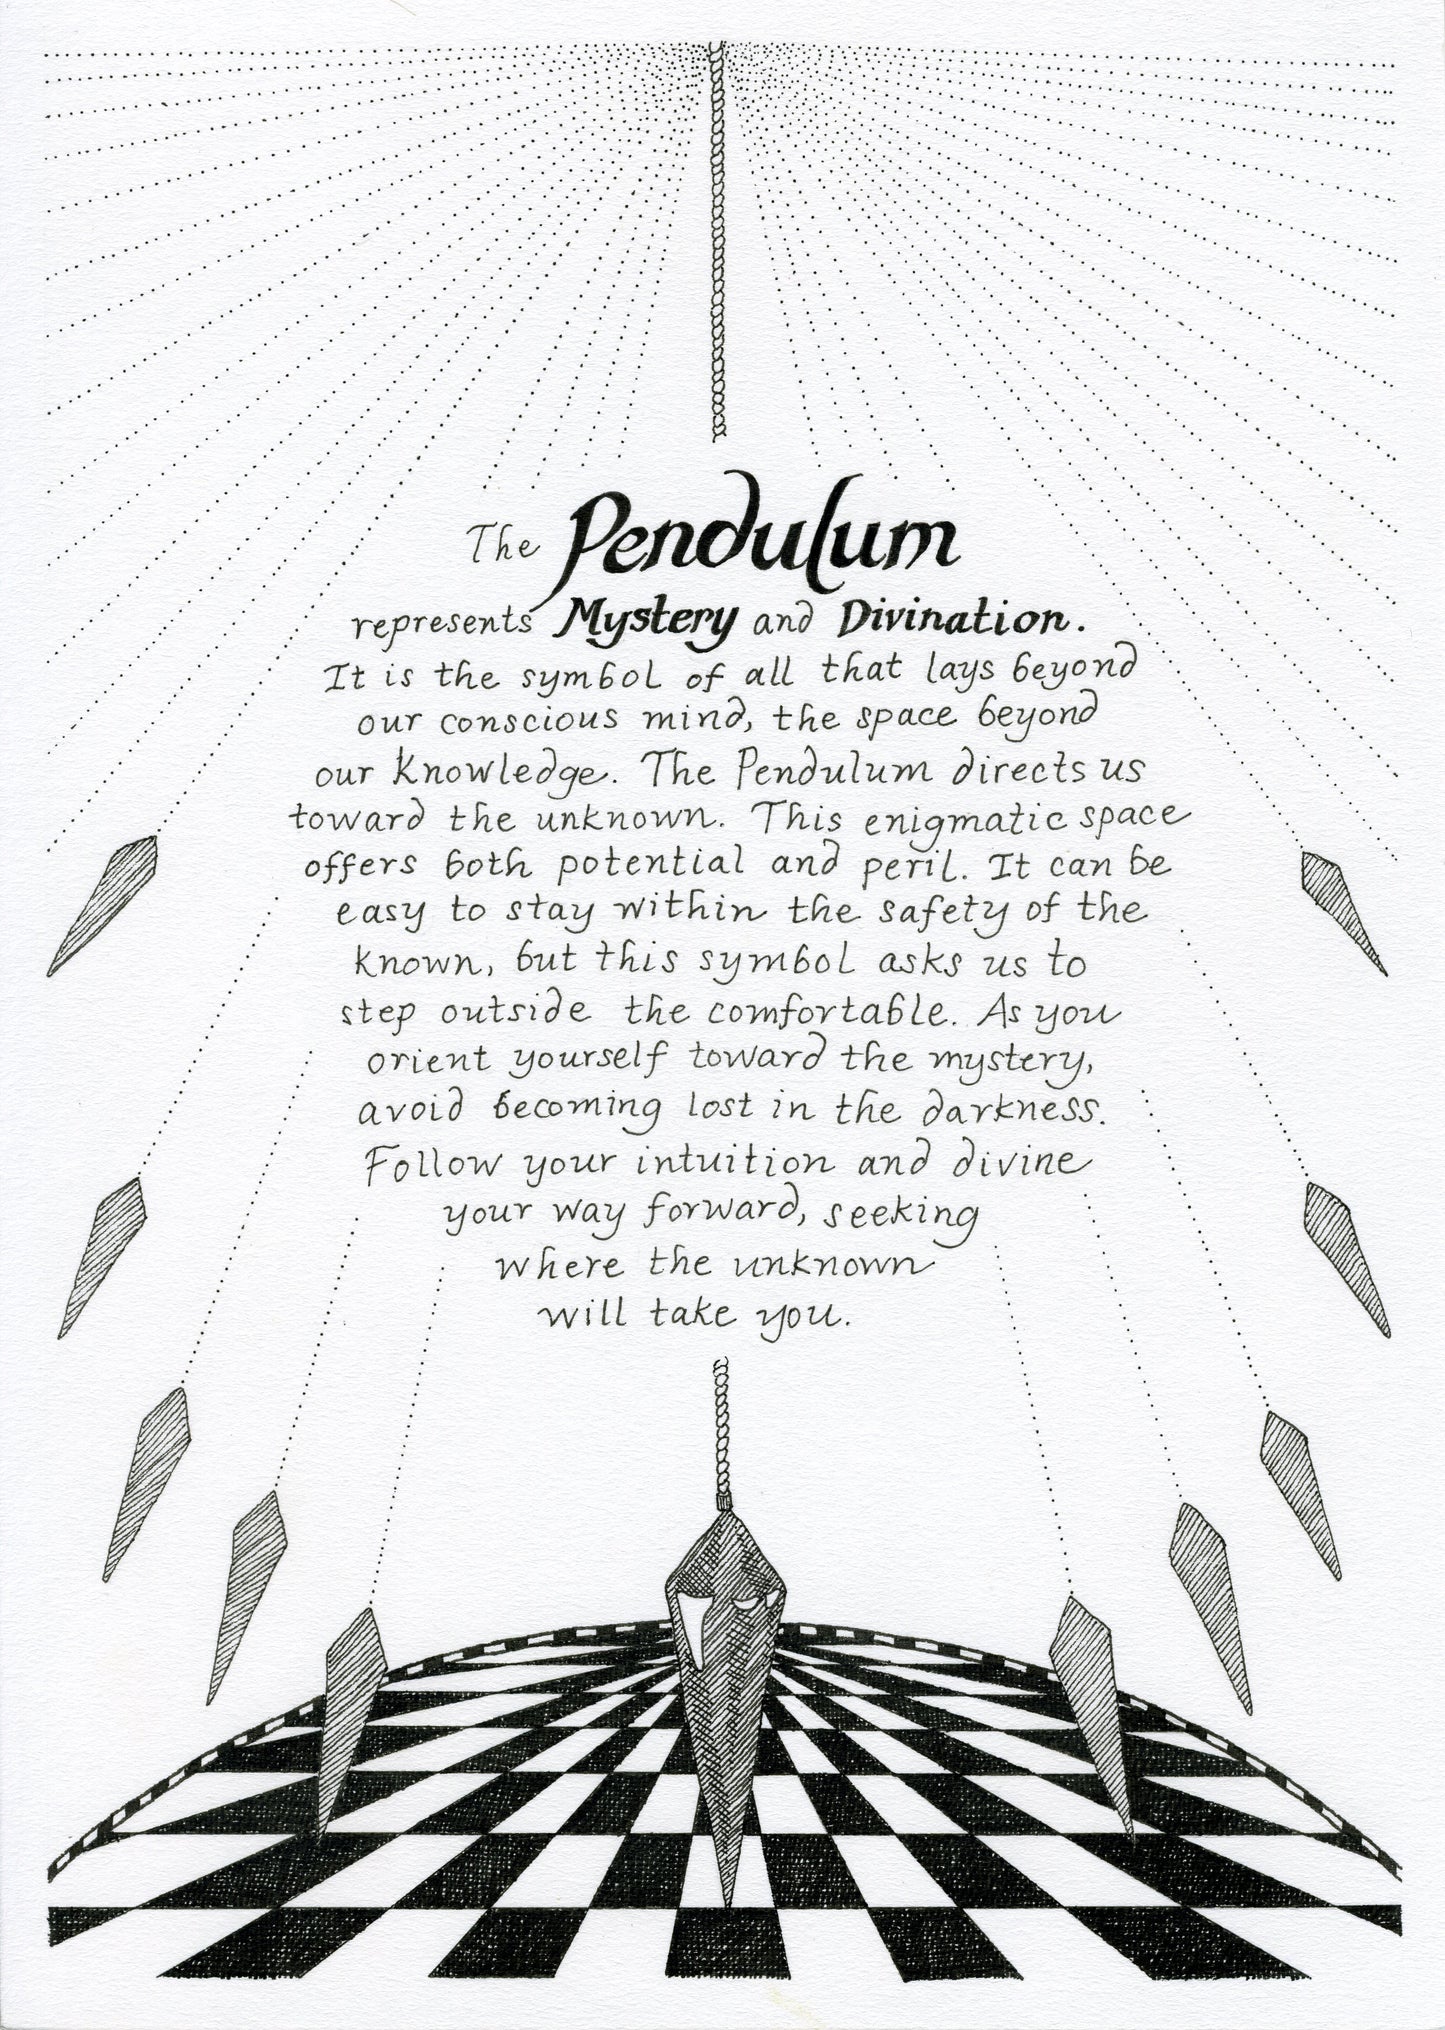 The Pendulum
represents Mystery and Divination.
It is the symbol of all that lays beyond
our conscious mind, the space beyond
our knowledge. The Pendulum directs us
toward the unknown. This enigmatic space
offers both potential and peril. It can be
easy to stay within the safety of the
known, but this symbol asks us to
step outside the comfortable. As you
orient yourself toward the mystery,
avoid becoming lost in the darkness.
Follow your intuition and divine
your way forward, seeking
where the unknown
will take you.